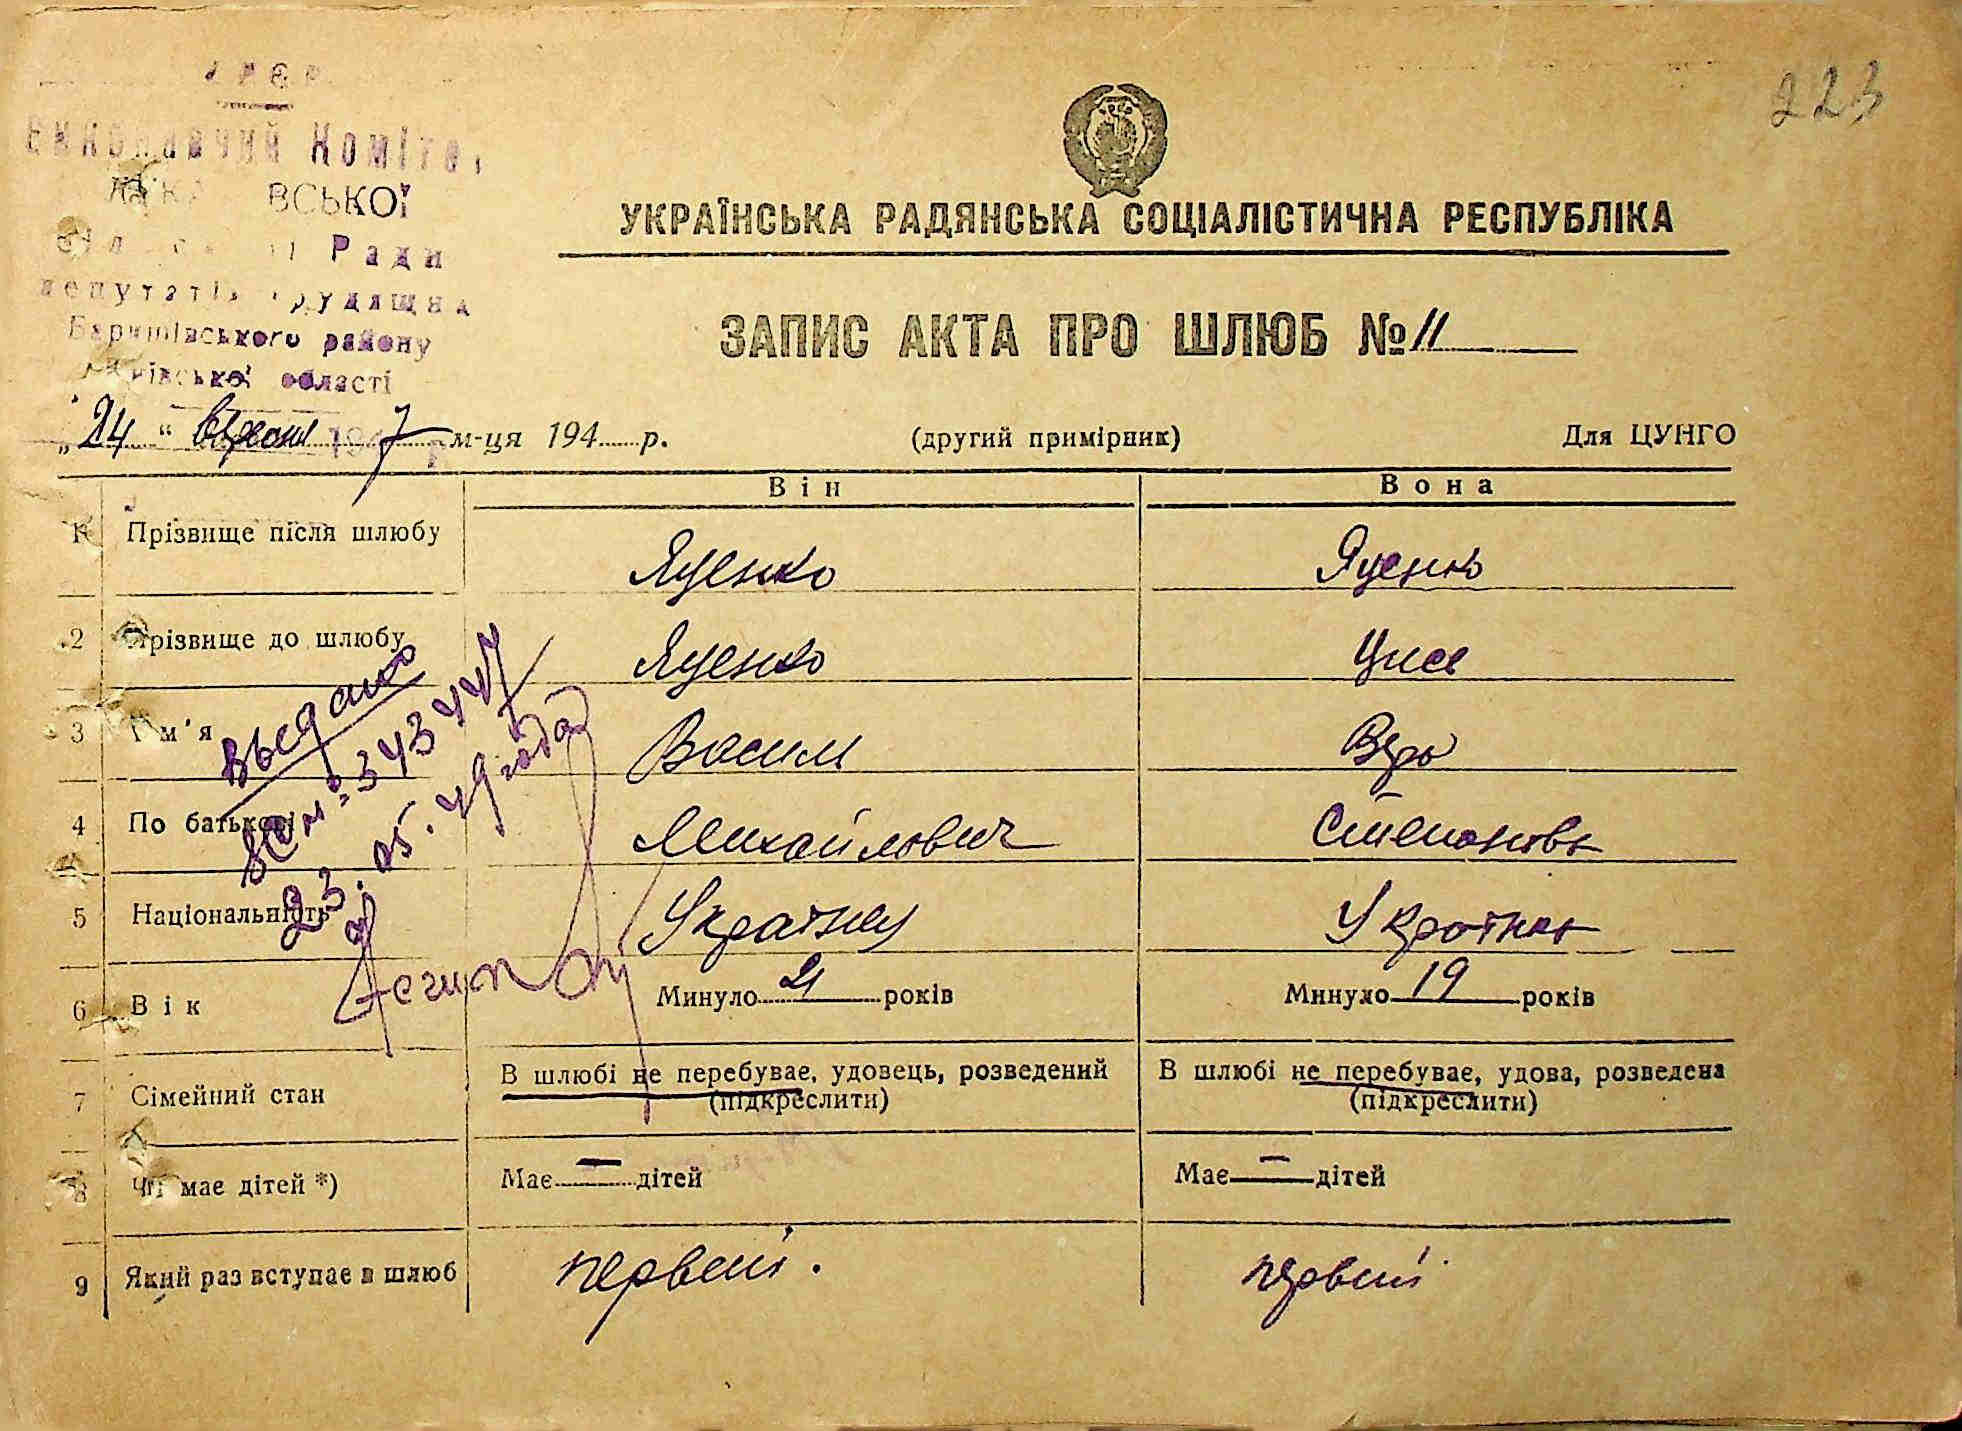 223
УРСР
Виконавчий Комітет
ВСЬКОЇ
Ради
депутатів трудящих
Баришівського району
Київської області
УКРАЇНСЬКА РАДЯНСЬКА СОЦІАЛІСТИЧНА РЕСПУБЛІКА
ЗАПИС АКТА ПРО ШЛЮБ № 11
„24“ вересня 1947 р м-ця 194 р.
(другий примірник)
Для ЦУНГО
Він
Вона
1 Прізвище після шлюбу Яценко Яценко
2 Прізвище до шлюбу Яценко
3 Ім'я Василь Вера
4 По батькові Михайлович Степановна
5 Національність Українец Українка
6 Вік Минуло 21 років Минуло 19 років
7 Сімейний стан В шлюбі не перебуває, удовець, розведений (підкреслити) В шлюбі не перебуває, удова, розведена (підкреслити)
8 Чи має дітей *) Має — дітей Має — дітей
9 Який раз вступає в шлюб первий. первий
выдано
№ 343447
23.05.49 года